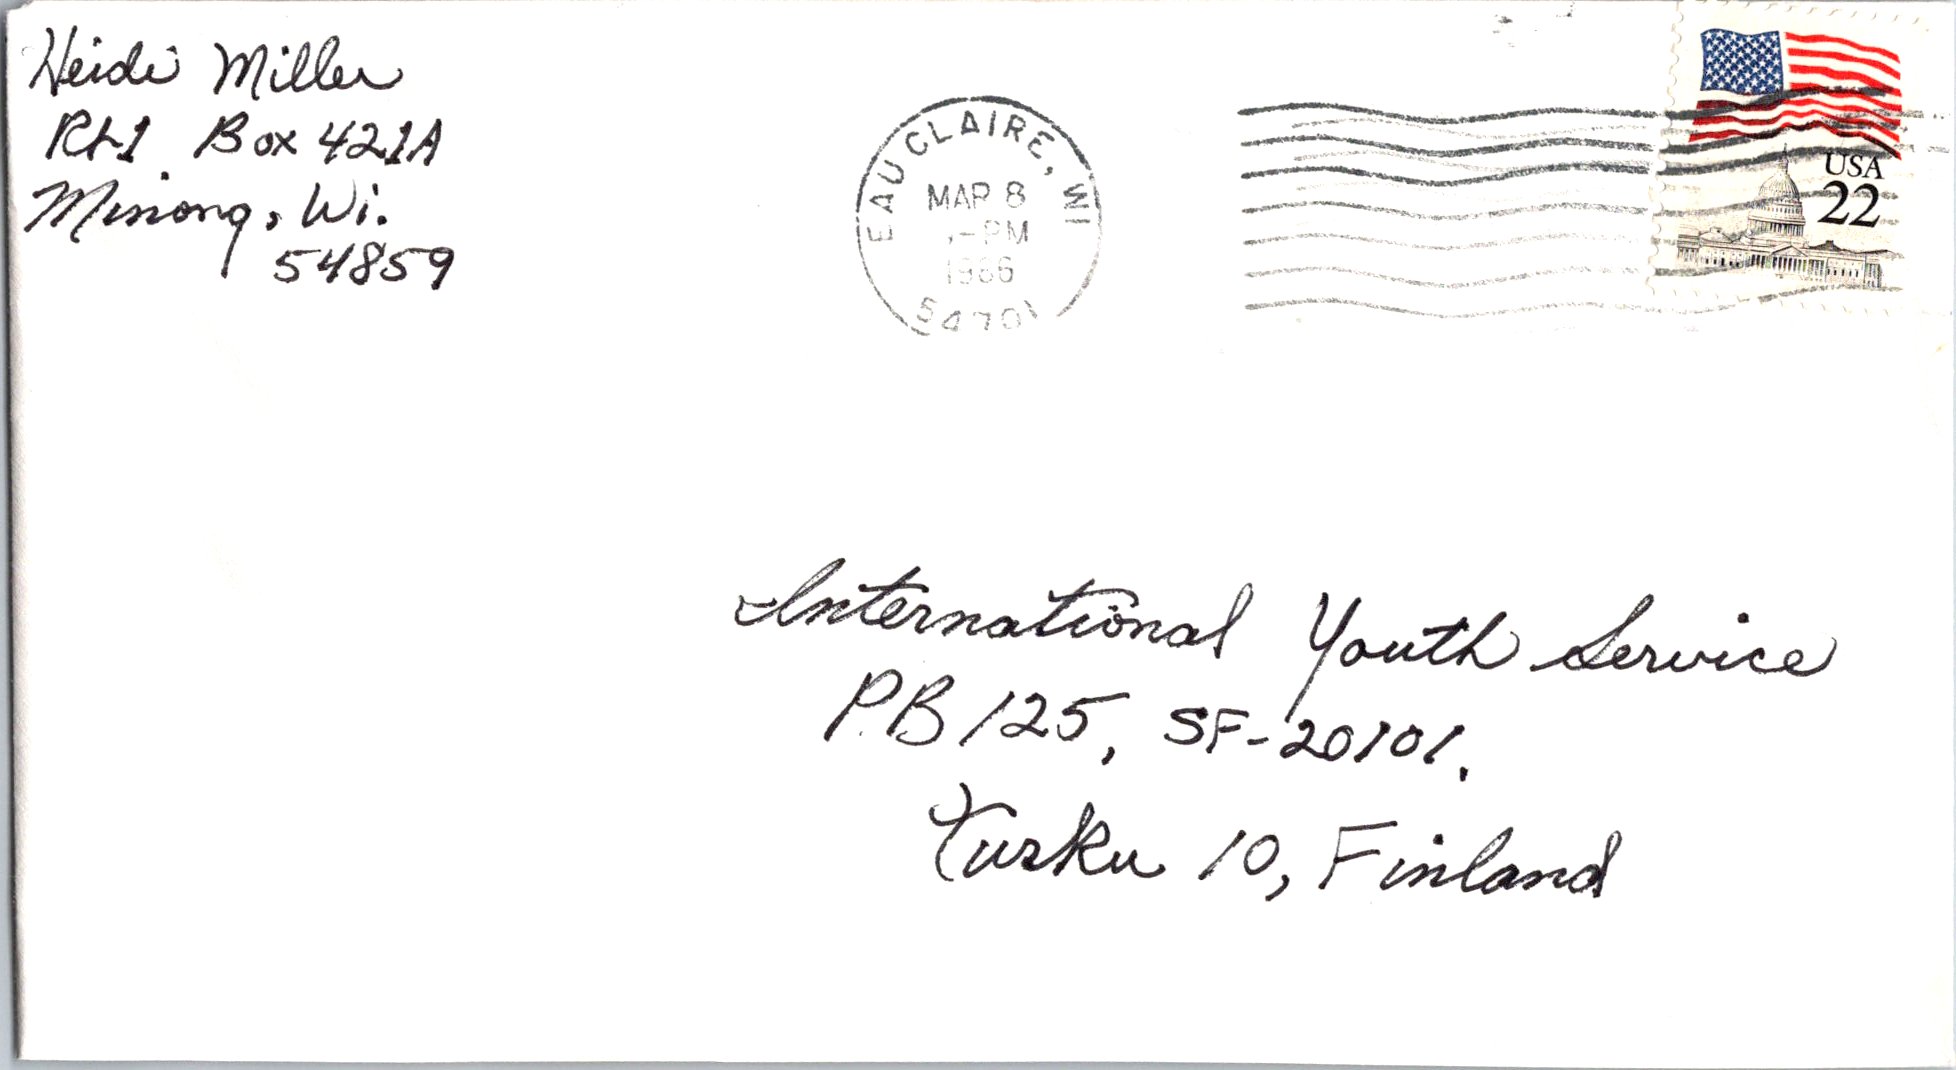 Heidi Miller
Rt 1 Box 421A
Minong, Wi.
54859
EAU CLAIRE, WI
MAR 8
PM
1986
54701
USA
22
International Youth Service
PB 125, SF-20101.
Turku 10, Finland